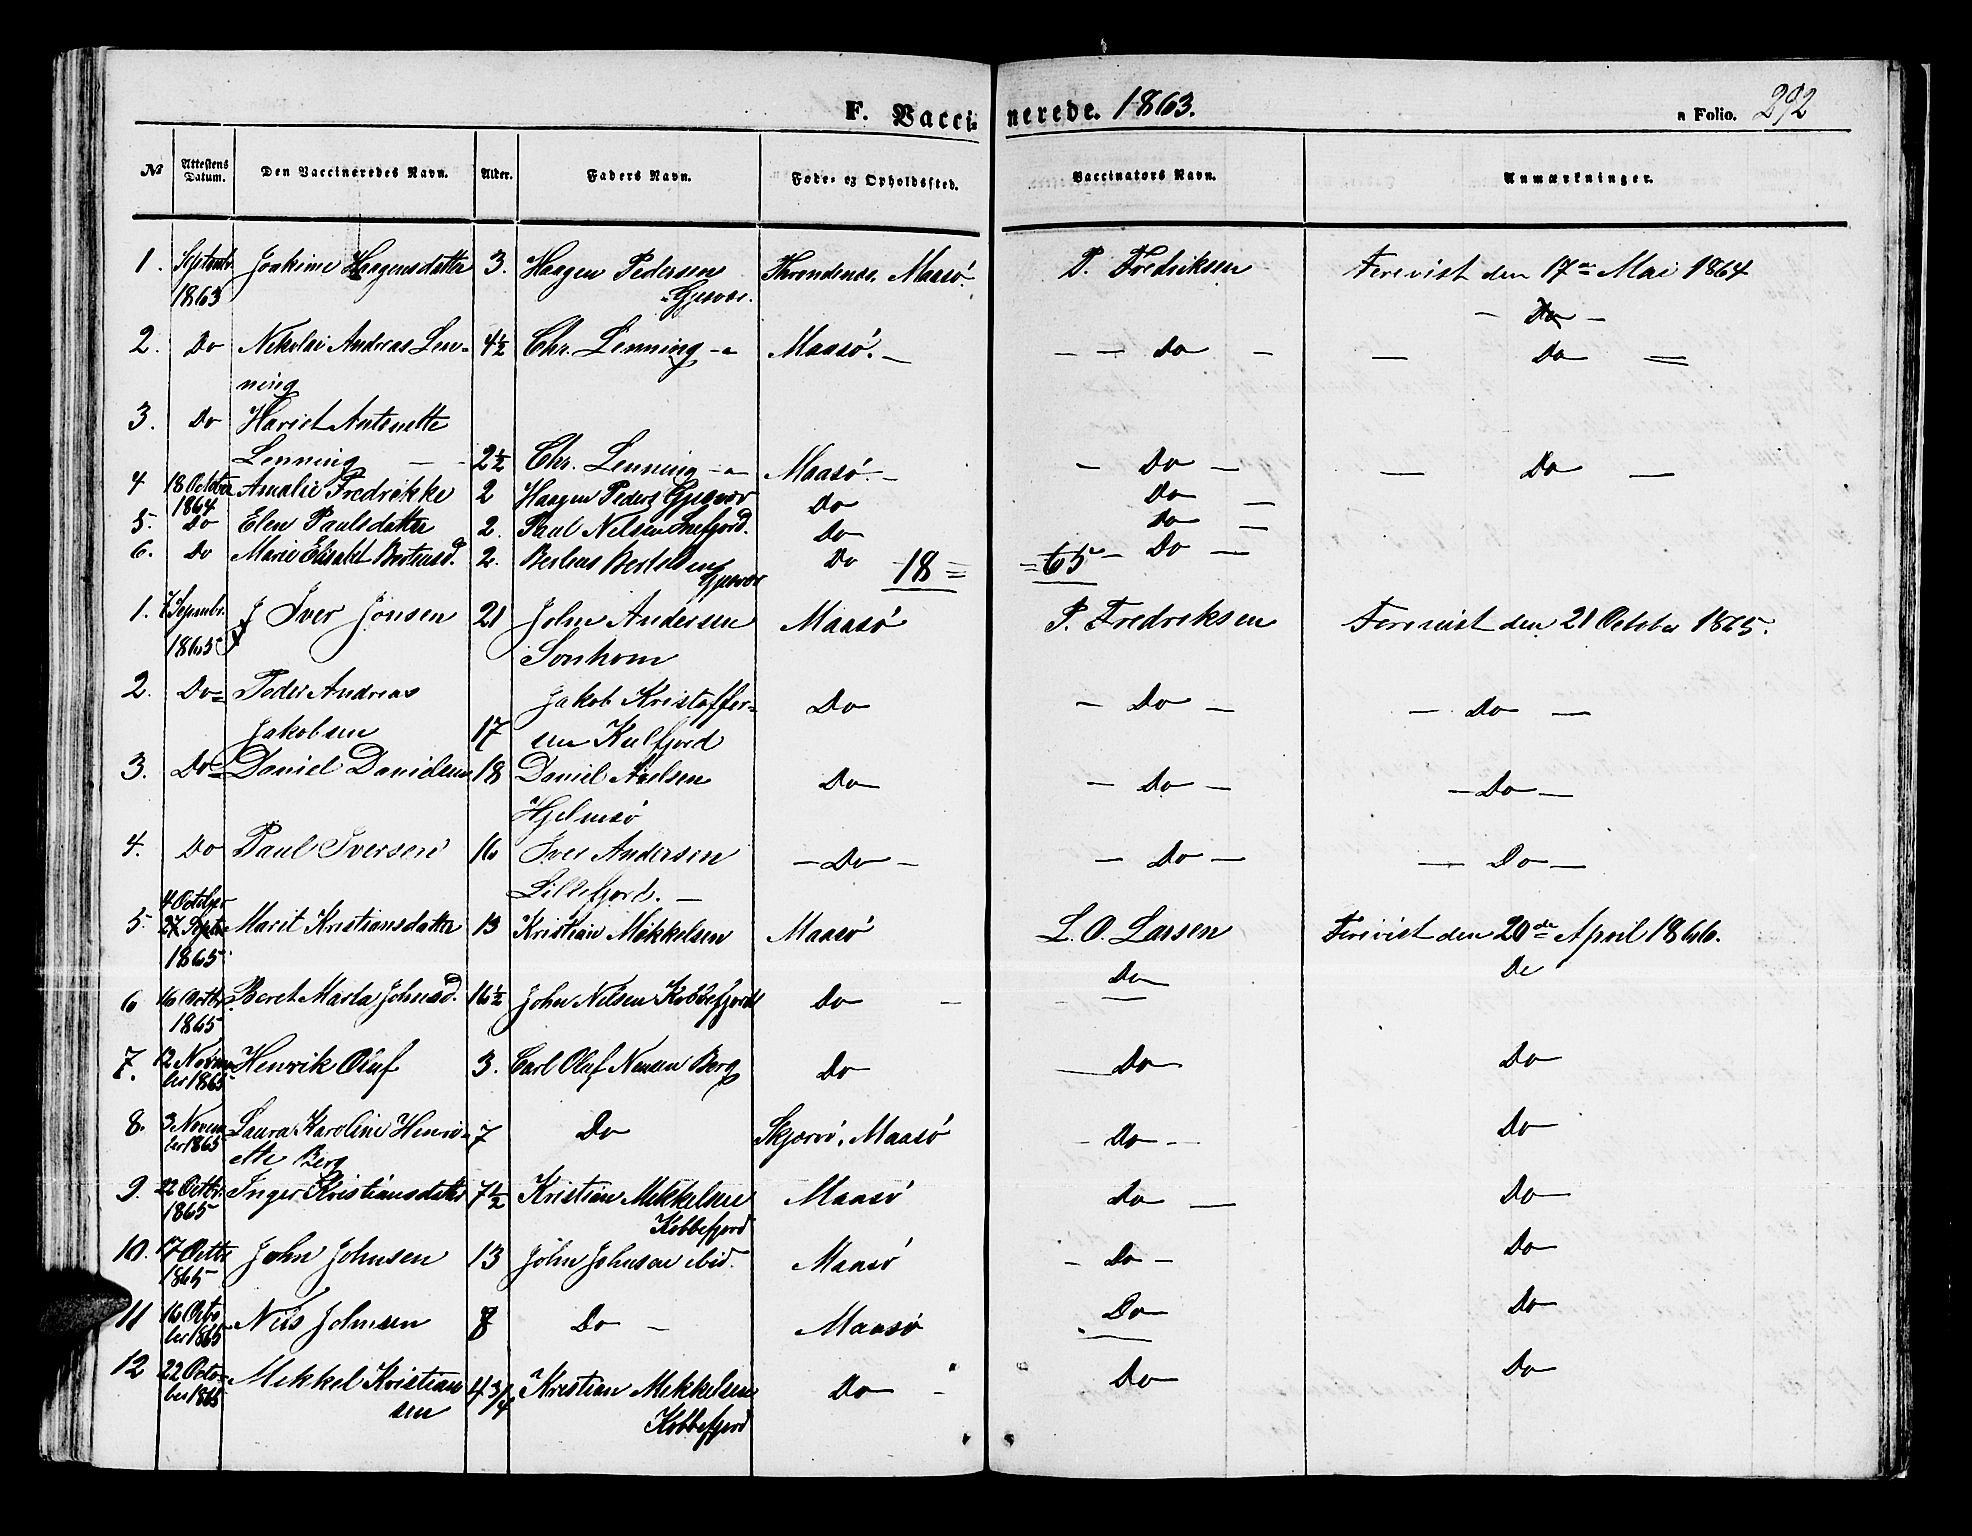 F. Vaccinerede. 1863. a Folio. 292
№ Attestens Datum. Den Vaccineredes Navn. Alder. Faders Navn. Føde- og Opholdssted. Vaccinators Navn. Anmærkninger.
1. Septembr Joakime Haagensdatter 3. Haagen Pedersen Throndenæs. Maasø. P. Fredriksen Forevist den 17de Mai 1864
1863 Gjesvær. – Do –
2. Do Nikolai Andreas Len- 4½ Chr. Lenning Maasø. – – – Do – – Do –
ning
3. Do Hariet Antonette
Lenning – – 2½ Chr. Lenning Maasø. – – Do – – Do –
4 18 October Amalie Fredrikke 2 Haagen Peders Gjesvær Do Do –
1864
5. Do Elen Paulsdatter 2. Paul Nelsen Snefjord. Do Do –
6. Do Marie Elisabt Bertensd. 2. Bertens Bertelsen Do – Do –
Gjesvær 18 = = 65
1. 7 Septembr. Iver Jonsen 21 John Andersen Maasø P. Fredriksen Forevist den 21 October 1865.
1865
2. Do= Peder Andreas Jakob Kristoffer- Do – Do – – Do –
Jakobsen 17 sen Kulfjord
3. Do= Daniel Danielsen 18 Daniel Do – Do – – Do –
Hjelmsø
4. Do Paul Iversen 16 Iver Andersen – Do – – Do – – Do –
Lillefjord. –
4 October
5. 27 Septbr Marit Kristiansdatter 13 Kristian Mikkelsen Maasø L. O. Larsen Forevist den 20de April 1866.
1865
6 16 Octbr Beret Marta Johnsd. 16½ John Nilsen Kobbefjord Do – Do Do
1865
7. 12 Novem- Henrik Oluf 3. Carl Oluf Berg Do Do Do
ber 1865
8. 3 Novem- Laura Karoline Henri- 7 Do Skjærvø, Maasø – Do – Do
ber 1865 ette Berg
9. 22 Octbr. Inger Kristiansdatter 7½ Kristian Mikkelsen Maasø Do – Do
1865 Kobbefjord
10. 17 Octbr John Johnsen 13 John Johnsen ibid. Maasø – Do – Do
1865
11 16 Octo- Nils Johnsen 8 Do – Maasø Do Do
ber 1865
12 22 Octo- Mikkel Kristian 4¾ Kristian Mikkelsen Do – Do Do
ber 1865 sen Kobbefjord